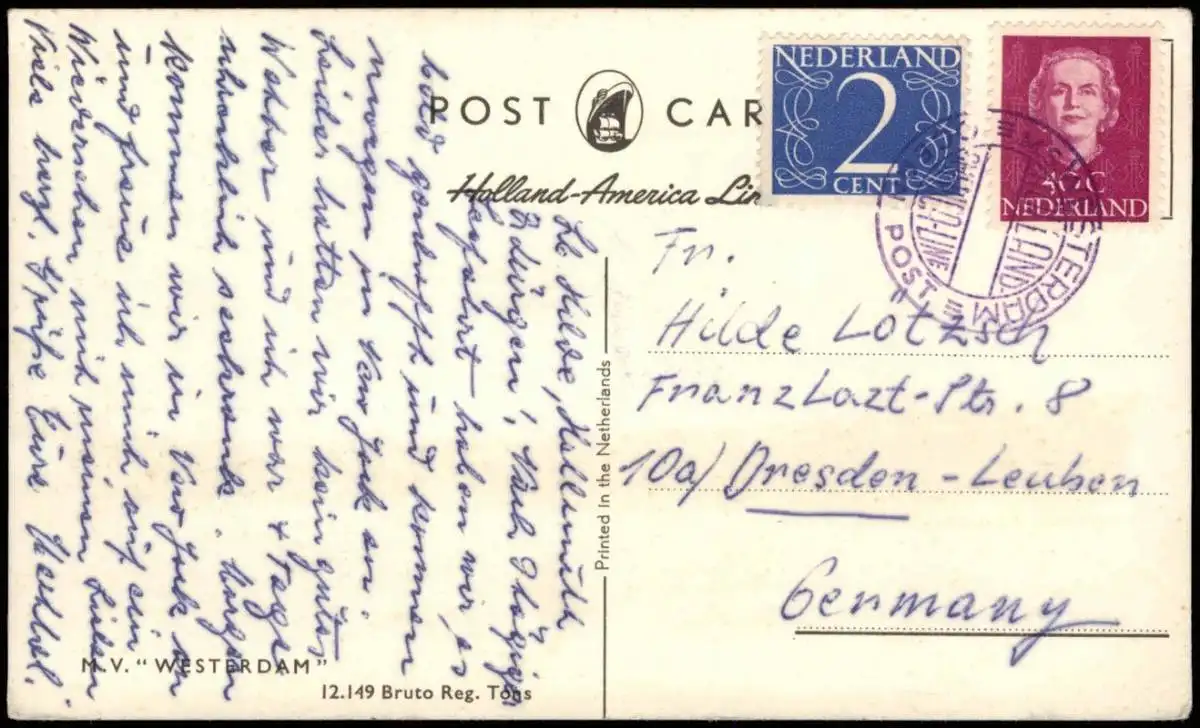 POST CAR
Holland-America Lin
NEDERLAND
2
CENT
40C
NEDERLAND
WESTERDAM
POST
Lb. Hilde, Hellmuth
u. Jürgen! Nach 9 tägiger
Seefahrt haben wir es
bald geschafft und kommen
morgen in New York an.
Leider hatten wir kein gutes
Wetter und ich war 4 Tage
seekrank. Morgen
kommen wir in New York an
und freue ich mich auf ein
Wiedersehen mit meinen Lieben
Viele herzl. Grüße Eure
Fr.
Hilde Lötzsch
Franz Lazt-Str. 8
10a) Dresden-Leuben
Germany
Printed in the Netherlands
M.V. "WESTERDAM"
12.149 Bruto Reg. Tons